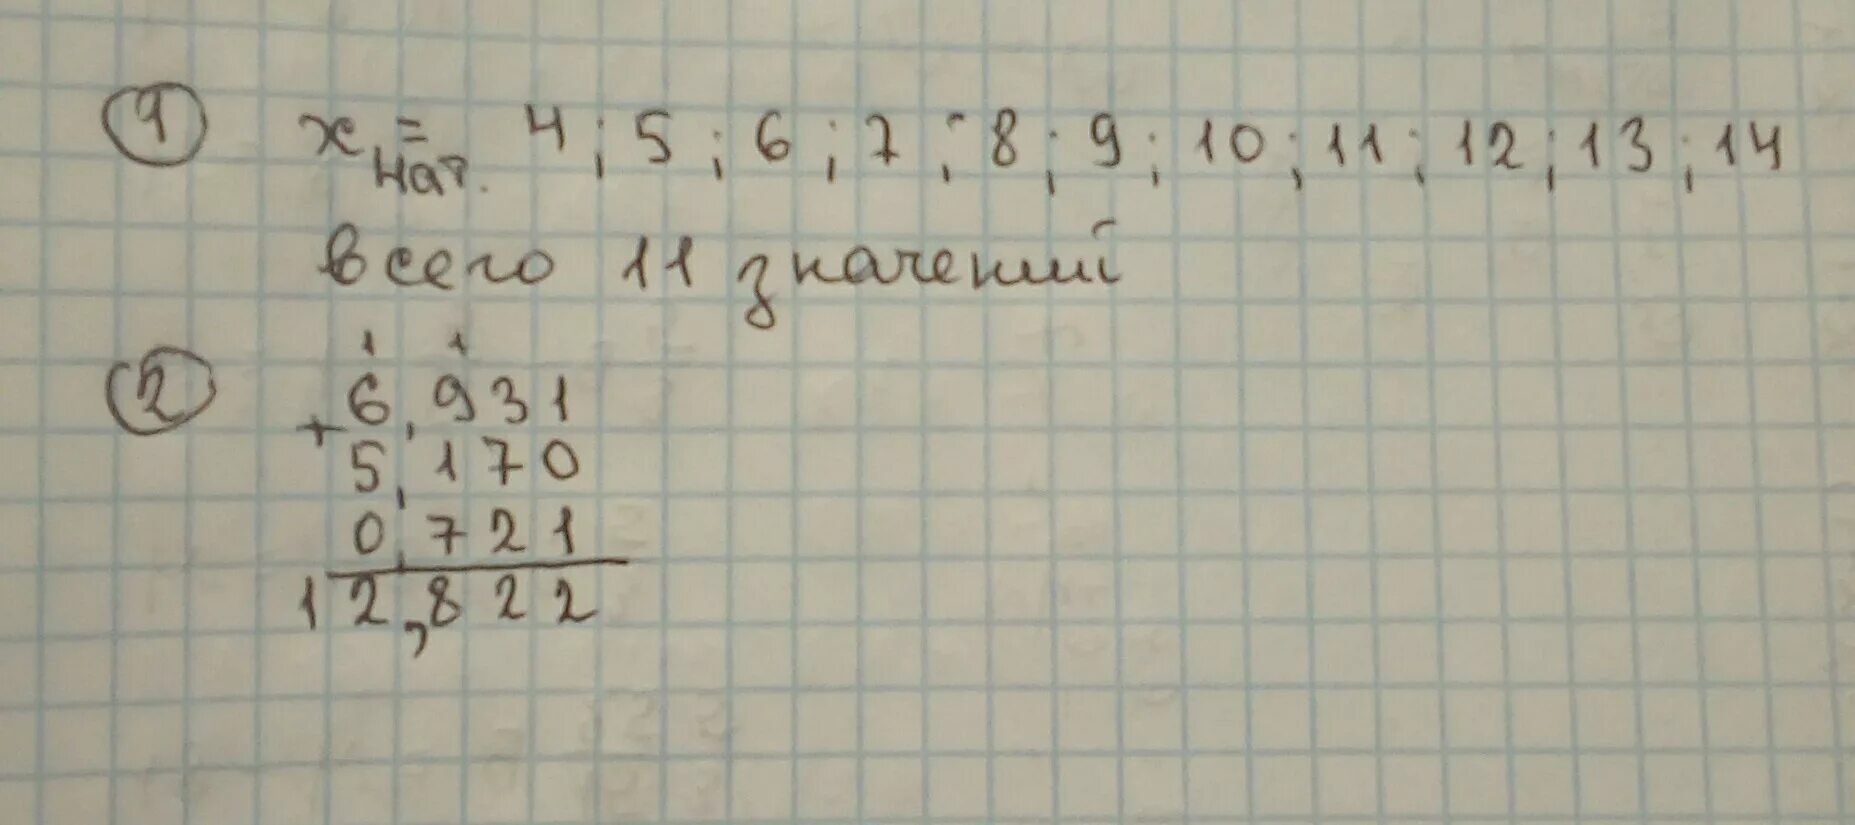 ① x нат. = 4; 5; 6; 7; 8; 9; 10; 11; 12; 13; 14
всего 11 значений
② 1 1
+ 6,931
5,170
0,721
12,822